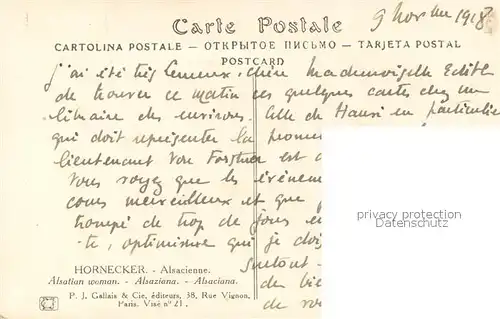 Carte Postale
9 Nov bre 1918
CARTOLINA POSTALE – ОТКРЫТОЕ ПИСЬМО – TARJETA POSTAL
POSTCARD
j'ai été très heureux, chère Mademoiselle Edith
de trouver ce matin ces quelques cartes chez un
libraire des environs. Celle de Hansi en particulier
qui doit représenter la
lieutenant Von Forstner est
Vous voyez que les
cours merveilleux et que
trompé de trop de jours en
-te, optimisme qui je dois
Surtout
de
de
privacy protection
www.oldthing.com
HORNECKER. - Alsacienne.
Alsatian woman. - Alsaziana. - Alsaciana.
P. J. Gallais & Cie, éditeurs, 38, Rue Vignon,
Paris. Visé nº 21.